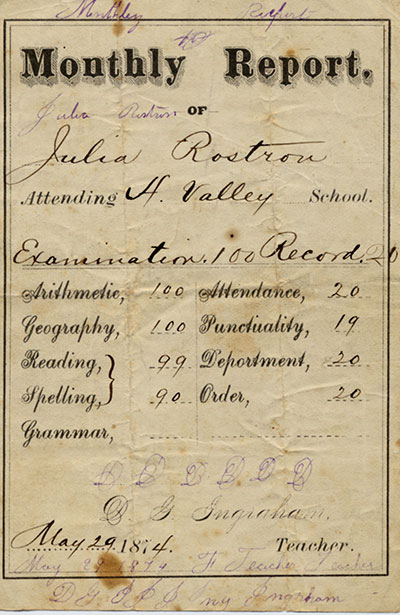 Monthly Report
Monthly Report.
Julia Rostron OF
Julia Rostron
Attending H. Valley School.
Examination. 100 Record. 20
Arithmetic, 100 Attendance, 20
Geography, 100 Punctuality, 19
Reading, 99 Deportment, 20
Spelling, 90 Order, 20
Grammar,
D D D D D D
D. G. Ingraham.
May 29 1874. Teacher.
May 29 1874 F Teacher Teacher
D. G. Ingraham